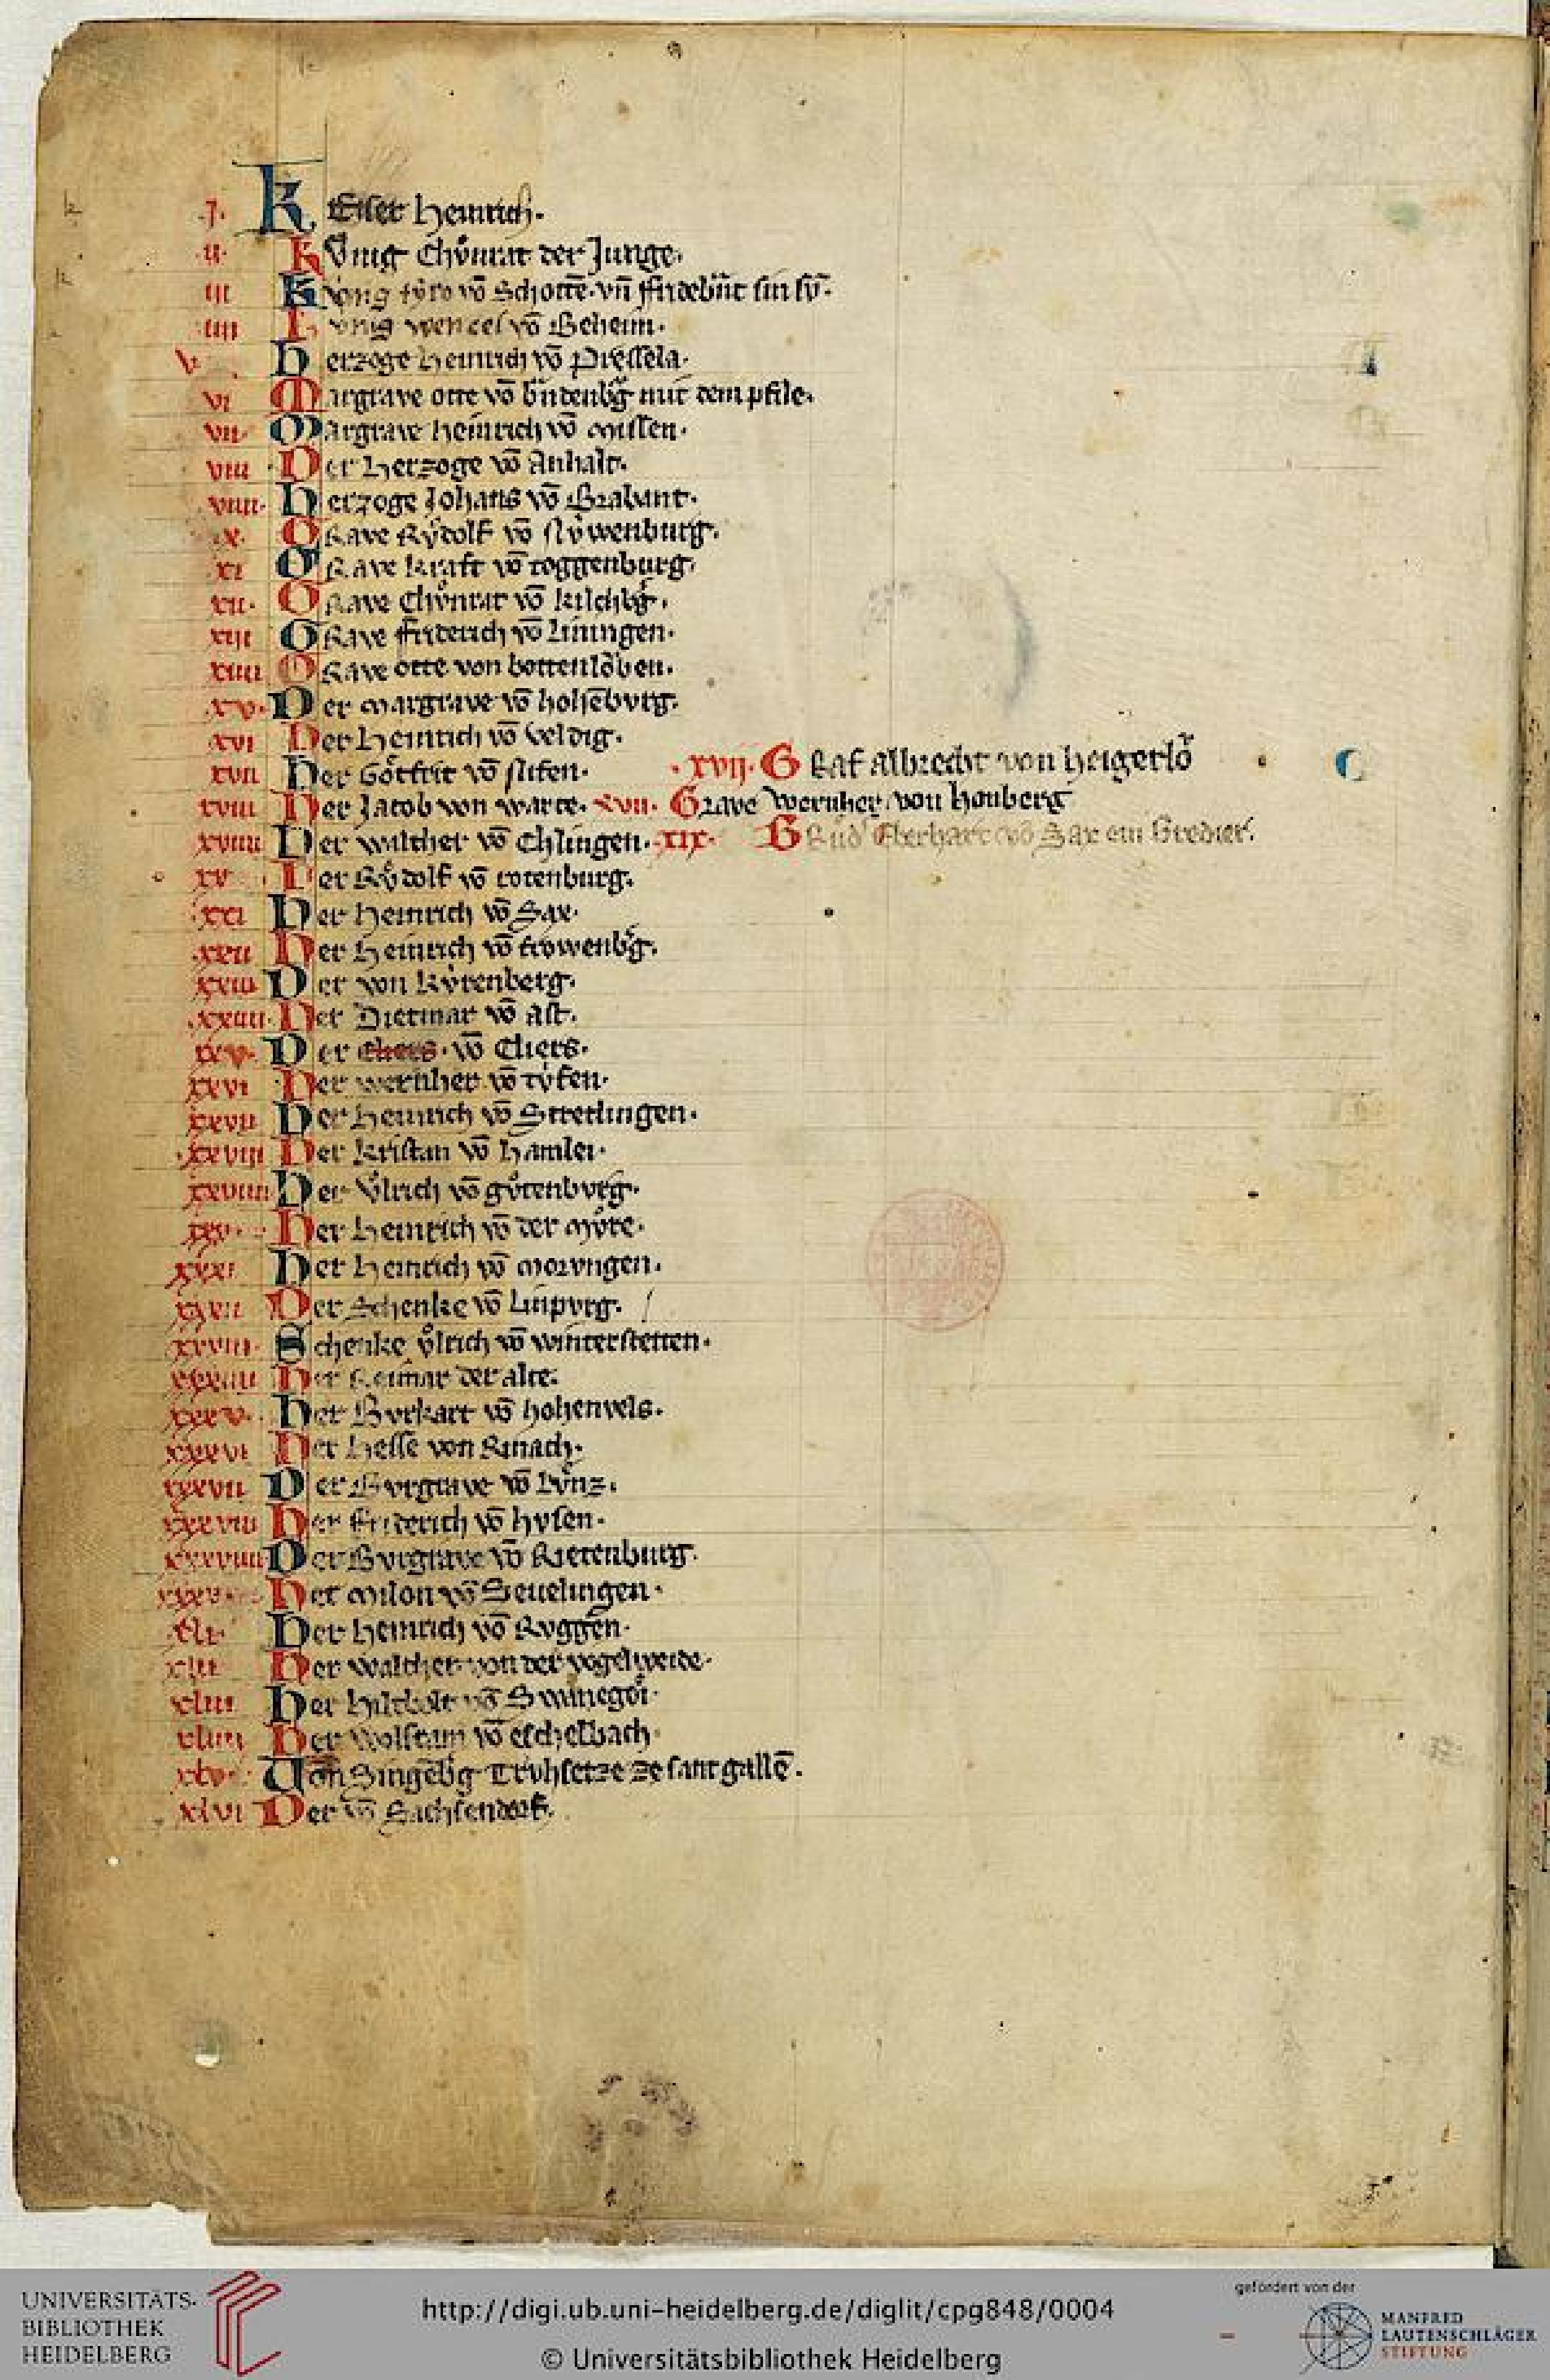 .j. KEiser Heinrich.
.ii. Kv̍nig Chůnrat der Junge.
iij Kv̍nig tẏro vō Schottē. vn̄ ffridebrāt sin sv̄.
iiii Kv̍nig wenzel vō Beheim.
v Herzoge Heinrich vō Pressela.
vi Margrave otte vō brādenbᵍg mit dem pfile.
vii Margrave heinrich vō missen.
viii Der Herzoge vō Anhalt.
viiii. Herzoge Johans vō Brabant.
x. GRave Rv̊dolf vō Nv̍wenburg.
xi GRave kraft vō toggenburg.
xii. GRave Chůnrat vō kilchbᵍg.
xiij GRave ffriderich vō liningen.
xiiii GRave otte von bottenlŏben.
xv. Der margrave vō hohēbvrg.
xvi Her Heinrich vō veldig.
xvii Her Götfrit vō nifen. .xvij. GRaf albrecht von heigerlŏ
xviii Her Jacob von warte. xvii. Grave Wernher von honberg
xviiii Her walther vō Chlingen. xix. BRůd' Eberhart vō Sax ein bredier.
xx Her Rv̊dolf vō rotenburg.
xxi Her Heinrich vō Sax.
xxii Her Heinrich vō frowenbᵍg.
xxiii Der von kv̍renberg.
xxiiii. Her Dietmar vō ast.
xxv. Der Cliers. vō Cliers.
xxvi Her wernher vō tv̍fen.
xxvii Her Heinrich vō Stretlingen.
xxviij Her kristan vō Hamlei.
xxviiii Her v̊lrich vō gůtenbvrg.
xxx. Her Heinrich vō der mv̊re.
xxxi Her Heinrich vō morvngen.
xxxii Der Schenke vō Linpvrg.
xxxiii. Schenke v̊lrich vō winterstetten.
xxxiiii Her Reimar der alte.
xxxv. Her Bvrkart vō hohenvels.
xxxvi Her Hesse von Rinach.
xxxvii Der Bvrgrave vō Lv̊nz.
xxxviii Her friderich vō hvsen.
xxxviiii Der Bvrgrave vō Rietenburg.
Her milon vō Sevelingen.
xli. Her Heinrich vō Rvggēn.
xlii Her walther von der vogelweide.
xliii Her hiltbolt vō Swanegŏi.
xliiii Her wolfram vō eschelbach.
xlv. Von Singēbᵍg Trvhsetze ze sant gallē.
xlvi Der vō Sachsendorf.
UNIVERSITÄTS-
BIBLIOTHEK
HEIDELBERG
http://digi.ub.uni-heidelberg.de/diglit/cpg848/0004
© Universitätsbibliothek Heidelberg
gefördert von der
MANFRED
LAUTENSCHLÄGER
STIFTUNG